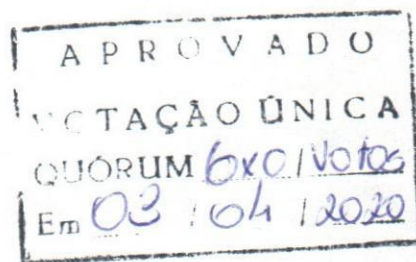 APROVADO
VOTAÇÃO ÚNICA
QUÓRUM 6x0 / Votos
Em 03 / 04 / 2020